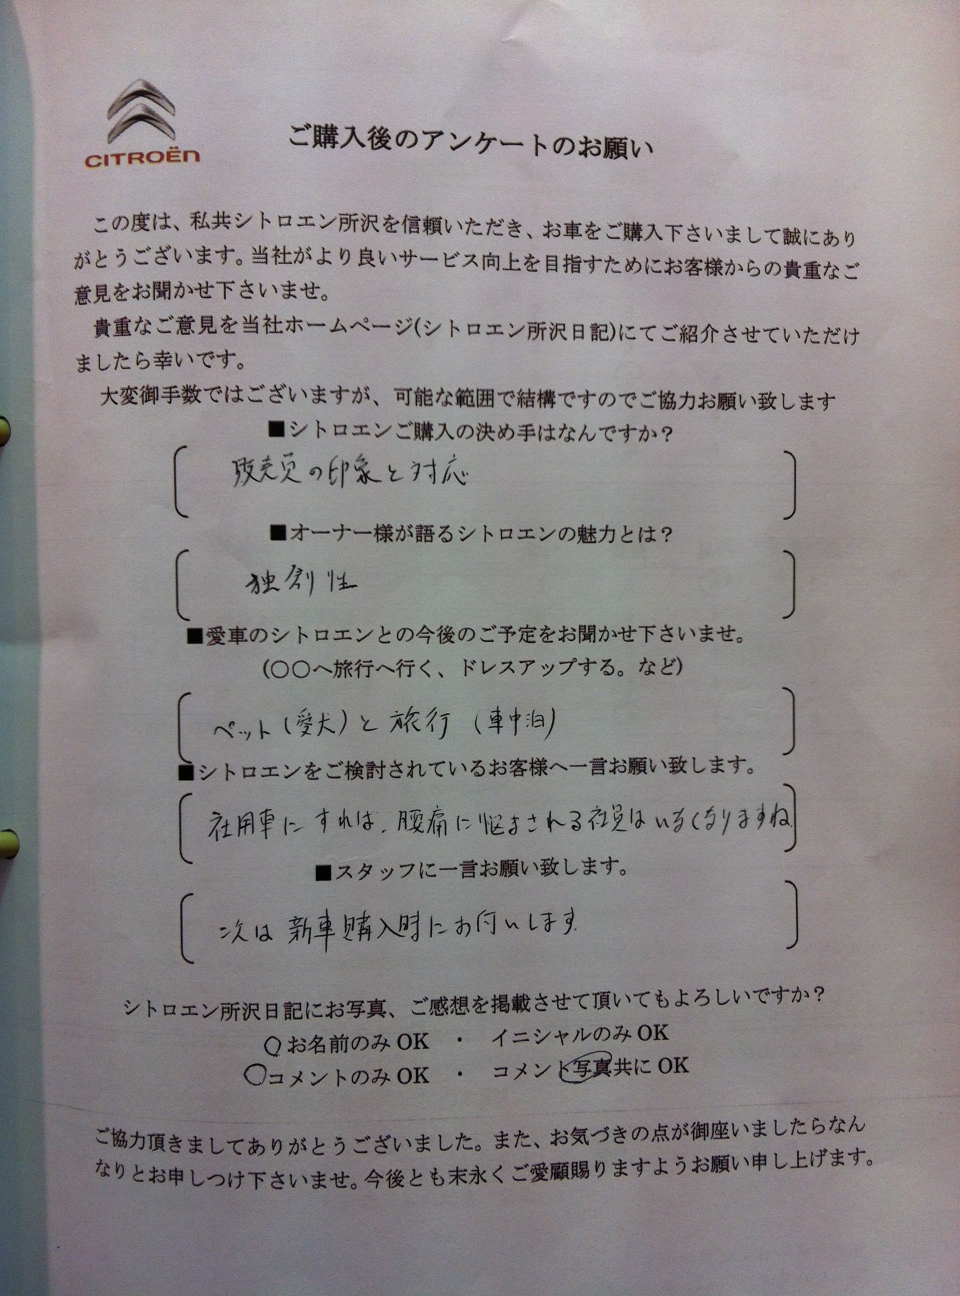 CITROËN
ご購入後のアンケートのお願い
この度は、私共シトロエン所沢を信頼いただき、お車をご購入下さいまして誠にあり
がとうございます。当社がより良いサービス向上を目指すためにお客様からの貴重なご
意見をお聞かせ下さいませ。
貴重なご意見を当社ホームページ(シトロエン所沢日記)にてご紹介させていただけ
ましたら幸いです。
大変御手数ではございますが、可能な範囲で結構ですのでご協力お願い致します
■シトロエンご購入の決め手はなんですか?
販売員の印象と対応
■オーナー様が語るシトロエンの魅力とは?
独創性
■愛車のシトロエンとの今後のご予定をお聞かせ下さいませ。
(○○へ旅行へ行く、ドレスアップする。など)
ペット(愛犬)と旅行(車中泊)
■シトロエンをご検討されているお客様へ一言お願い致します。
社用車にすれば、腰痛に悩まされる社員はいなくなりますね
■スタッフに一言お願い致します。
次は新車購入時にお付いします
シトロエン所沢日記にお写真、ご感想を掲載させて頂いてもよろしいですか?
○お名前のみ OK ・ イニシャルのみ OK
○コメントのみ OK ・ コメント写真共に OK
ご協力頂きましてありがとうございました。また、お気づきの点が御座いましたらなん
なりとお申しつけ下さいませ。今後とも末永くご愛顧賜りますようお願い申し上げます。